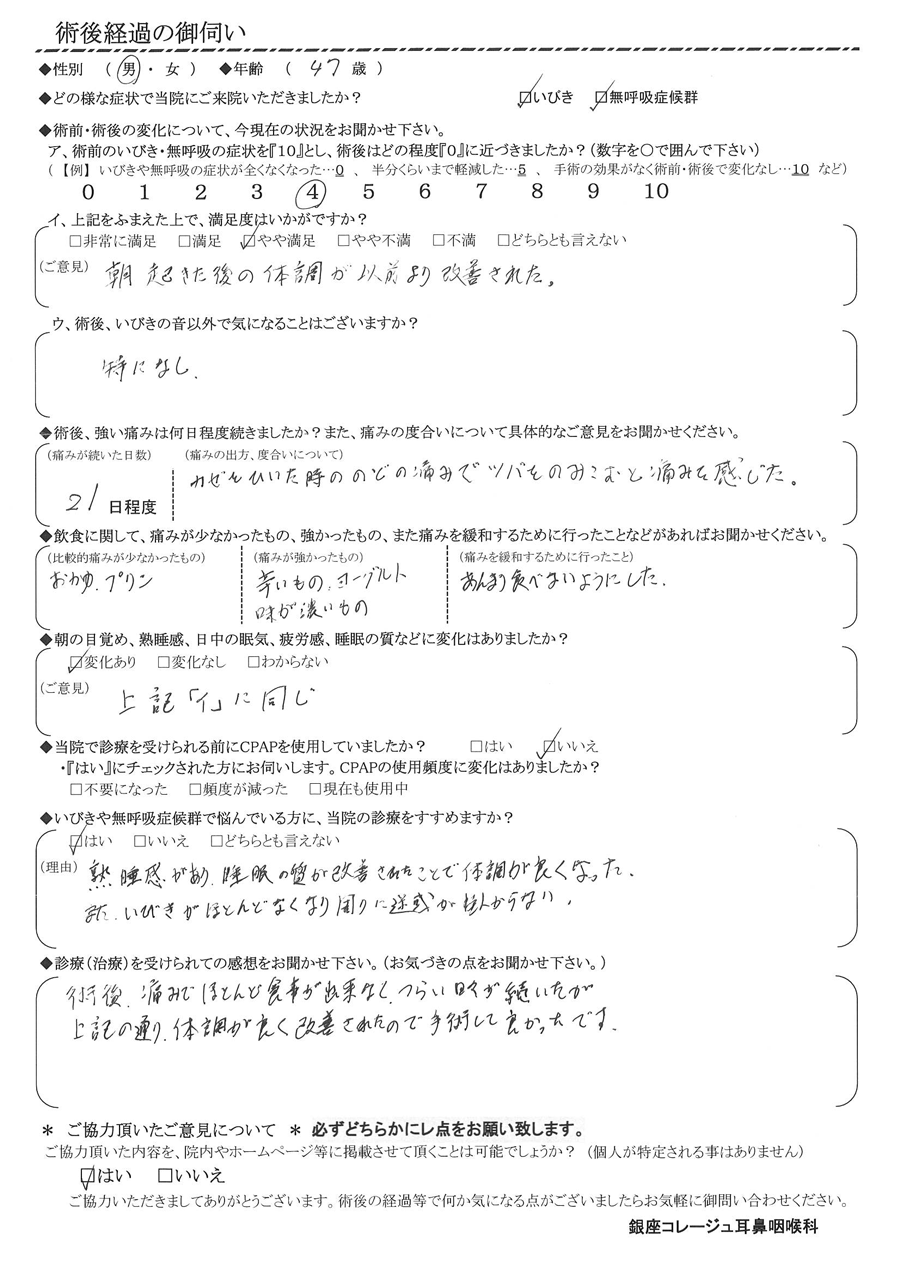 術後経過の御伺い
◆性別 （ 男 ・ 女 ） ◆年齢 （ 47 歳 ）
◆どの様な症状で当院にご来院いただきましたか？ ☑いびき ☑無呼吸症候群
◆術前・術後の変化について、今現在の状況をお聞かせ下さい。
ア、術前のいびき・無呼吸の症状を『10』とし、術後はどの程度『0』に近づきましたか？（数字を〇で囲んで下さい）
（ 【例】 いびきや無呼吸の症状が全くなくなった…0 、 半分くらいまで軽減した…5 、 手術の効果がなく術前・術後で変化なし…10 など）
0 1 2 3 4 5 6 7 8 9 10
イ、上記をふまえた上で、満足度はいかがですか？
□非常に満足 □満足 ☑やや満足 □やや不満 □不満 □どちらとも言えない
（ご意見） 朝起きた後の体調が以前より改善された。
ウ、術後、いびきの音以外で気になることはございますか？
特になし.
◆術後、強い痛みは何日程度続きましたか？また、痛みの度合いについて具体的なご意見をお聞かせください。
（痛みが続いた日数） （痛みの出方、度合いについて）
カゼをひいた時ののどの痛みでツバをのみこむと痛みを感じた。
21 日程度
◆飲食に関して、痛みが少なかったもの、強かったもの、また痛みを緩和するために行ったことなどがあればお聞かせください。
（比較的痛みが少なかったもの） （痛みが強かったもの） （痛みを緩和するために行ったこと）
おかゆ、プリン 辛いもの、ヨーグルト あんまり食べないようにした.
味が濃いもの
◆朝の目覚め、熟睡感、日中の眠気、疲労感、睡眠の質などに変化はありましたか？
☑変化あり □変化なし □わからない
（ご意見） 上記「イ」に同じ
◆当院で診療を受けられる前にCPAPを使用していましたか？ □はい ☑いいえ
・『はい』にチェックされた方にお伺いします。CPAPの使用頻度に変化はありましたか？
□不要になった □頻度が減った □現在も使用中
◆いびきや無呼吸症候群で悩んでいる方に、当院の診療をすすめますか？
☑はい □いいえ □どちらとも言えない
（理由） 熟睡感があり、睡眠の質が改善されたことで体調が良くなった.
また、いびきがほとんどなくなり周りに迷惑が掛からない.
◆診療（治療）を受けられての感想をお聞かせ下さい。（お気づきの点をお聞かせ下さい。）
術後、痛みでほとんど食事が出来なく、つらい日々が続いたが
上記の通り、体調が良く改善されたので手術して良かったです.
＊ ご協力頂いたご意見について ＊ 必ずどちらかにレ点をお願い致します。
ご協力頂いた内容を、院内やホームページ等に掲載させて頂くことは可能でしょうか？ （個人が特定される事はありません）
☑はい □いいえ
ご協力いただきましてありがとうございます。術後の経過等で何か気になる点がございましたらお気軽に御問い合わせください。
銀座コレージュ耳鼻咽喉科